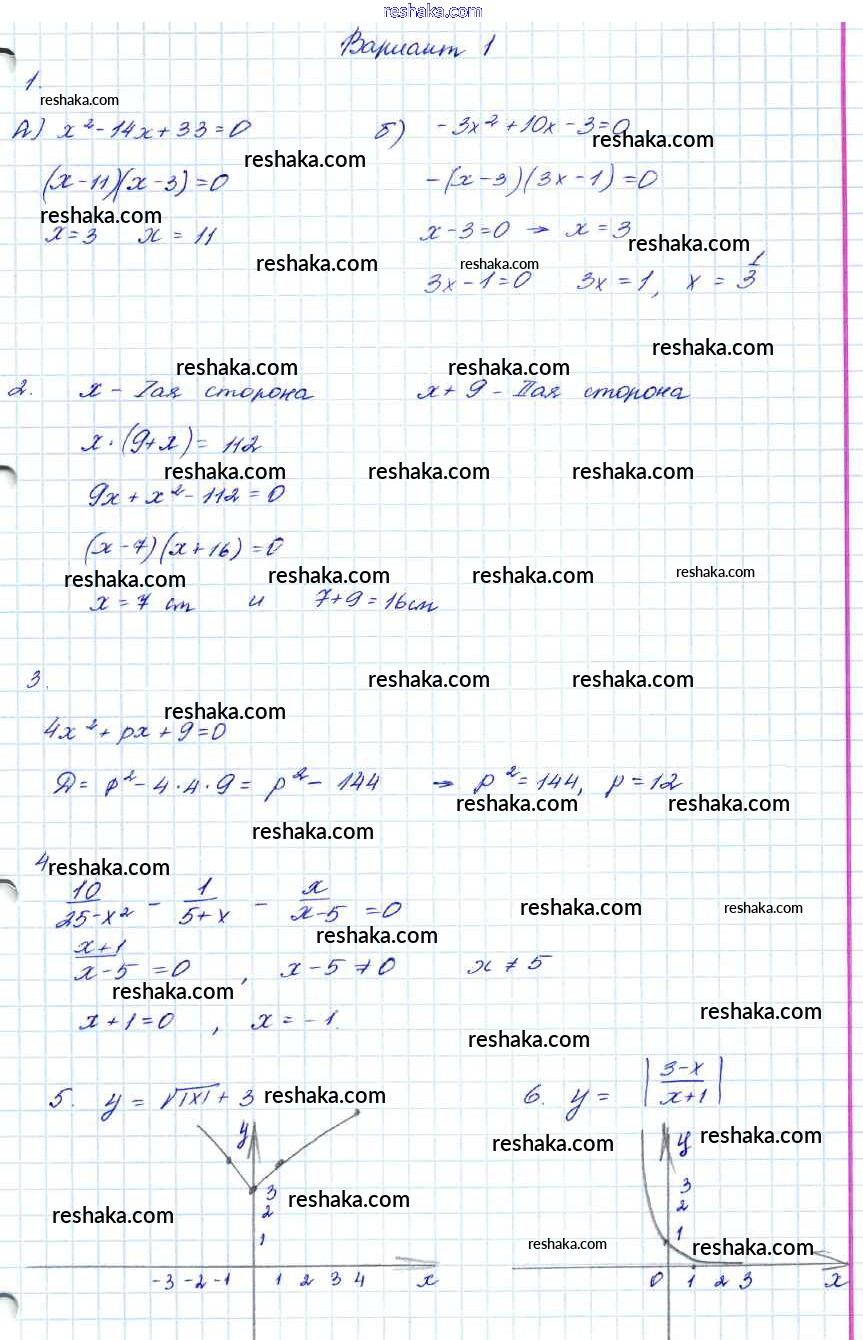 reshaka.com
Вариант 1
1.
reshaka.com
А) x² - 14x + 33 = 0 б) -3x² + 10x - 3 = 0
reshaka.com reshaka.com
(x - 11)(x - 3) = 0 -(x - 3)(3x - 1) = 0
reshaka.com
x = 3 x = 11 x - 3 = 0 → x = 3
reshaka.com
reshaka.com reshaka.com
3x - 1 = 0 3x = 1, x = 1/3
reshaka.com
reshaka.com reshaka.com
2. x - Iая сторона x + 9 - IIая сторона
x · (9 + x) = 112
reshaka.com reshaka.com reshaka.com
9x + x² - 112 = 0
(x - 7)(x + 16) = 0
reshaka.com reshaka.com reshaka.com reshaka.com
x = 7 cm и 7 + 9 = 16 см
3.
reshaka.com reshaka.com
reshaka.com
4x² + px + 9 = 0
D = p² - 4 · 4 · 9 = p² - 144 → p² = 144, p = 12
reshaka.com reshaka.com
reshaka.com
4 reshaka.com
10/(25 - x²) - 1/(5 + x) - x/(x - 5) = 0
reshaka.com reshaka.com
reshaka.com
(x + 1)/(x - 5) = 0, x - 5 ≠ 0 x ≠ 5
reshaka.com
reshaka.com
x + 1 = 0, x = -1.
reshaka.com
5. y = √|x| + 3 6. y = |(3 - x)/(x + 1)|
reshaka.com
y y
reshaka.com reshaka.com
3 3
2 2
reshaka.com reshaka.com
1 1
reshaka.com reshaka.com
-3 -2 -1 1 2 3 4 x 0 1 2 3 x